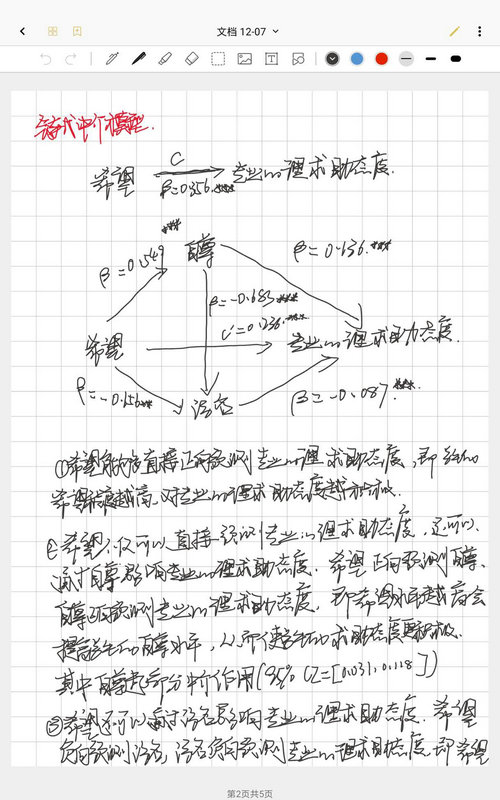 文档 12-07
链式中介模型.
C
希望 专业心理求助态度.
β=0.356.***
***
自尊
β=0.549
β=0.136.***
β=-0.683***
C'=0.236.***
希望 专业心理求助态度.
β=-0.156***
污名
β=-0.087***
①希望能够直接正向预测专业心理求助态度,即
希望越高,对专业心理求助态度越积极.
②希望不仅可以直接预测专业心理求助态度,还可以
通过自尊影响专业心理求助态度.希望正向预测自尊、
自尊正向预测专业心理求助态度,即希望水平越高会
提高学生的自尊水平,从而使学生的求助态度更积极.
其中自尊起部分中介作用(95% CI=[0.031,0.118])
③希望还可以通过污名影响专业心理求助态度.希望
负向预测污名,污名负向预测专业心理求助态度,即希望
第2页共5页